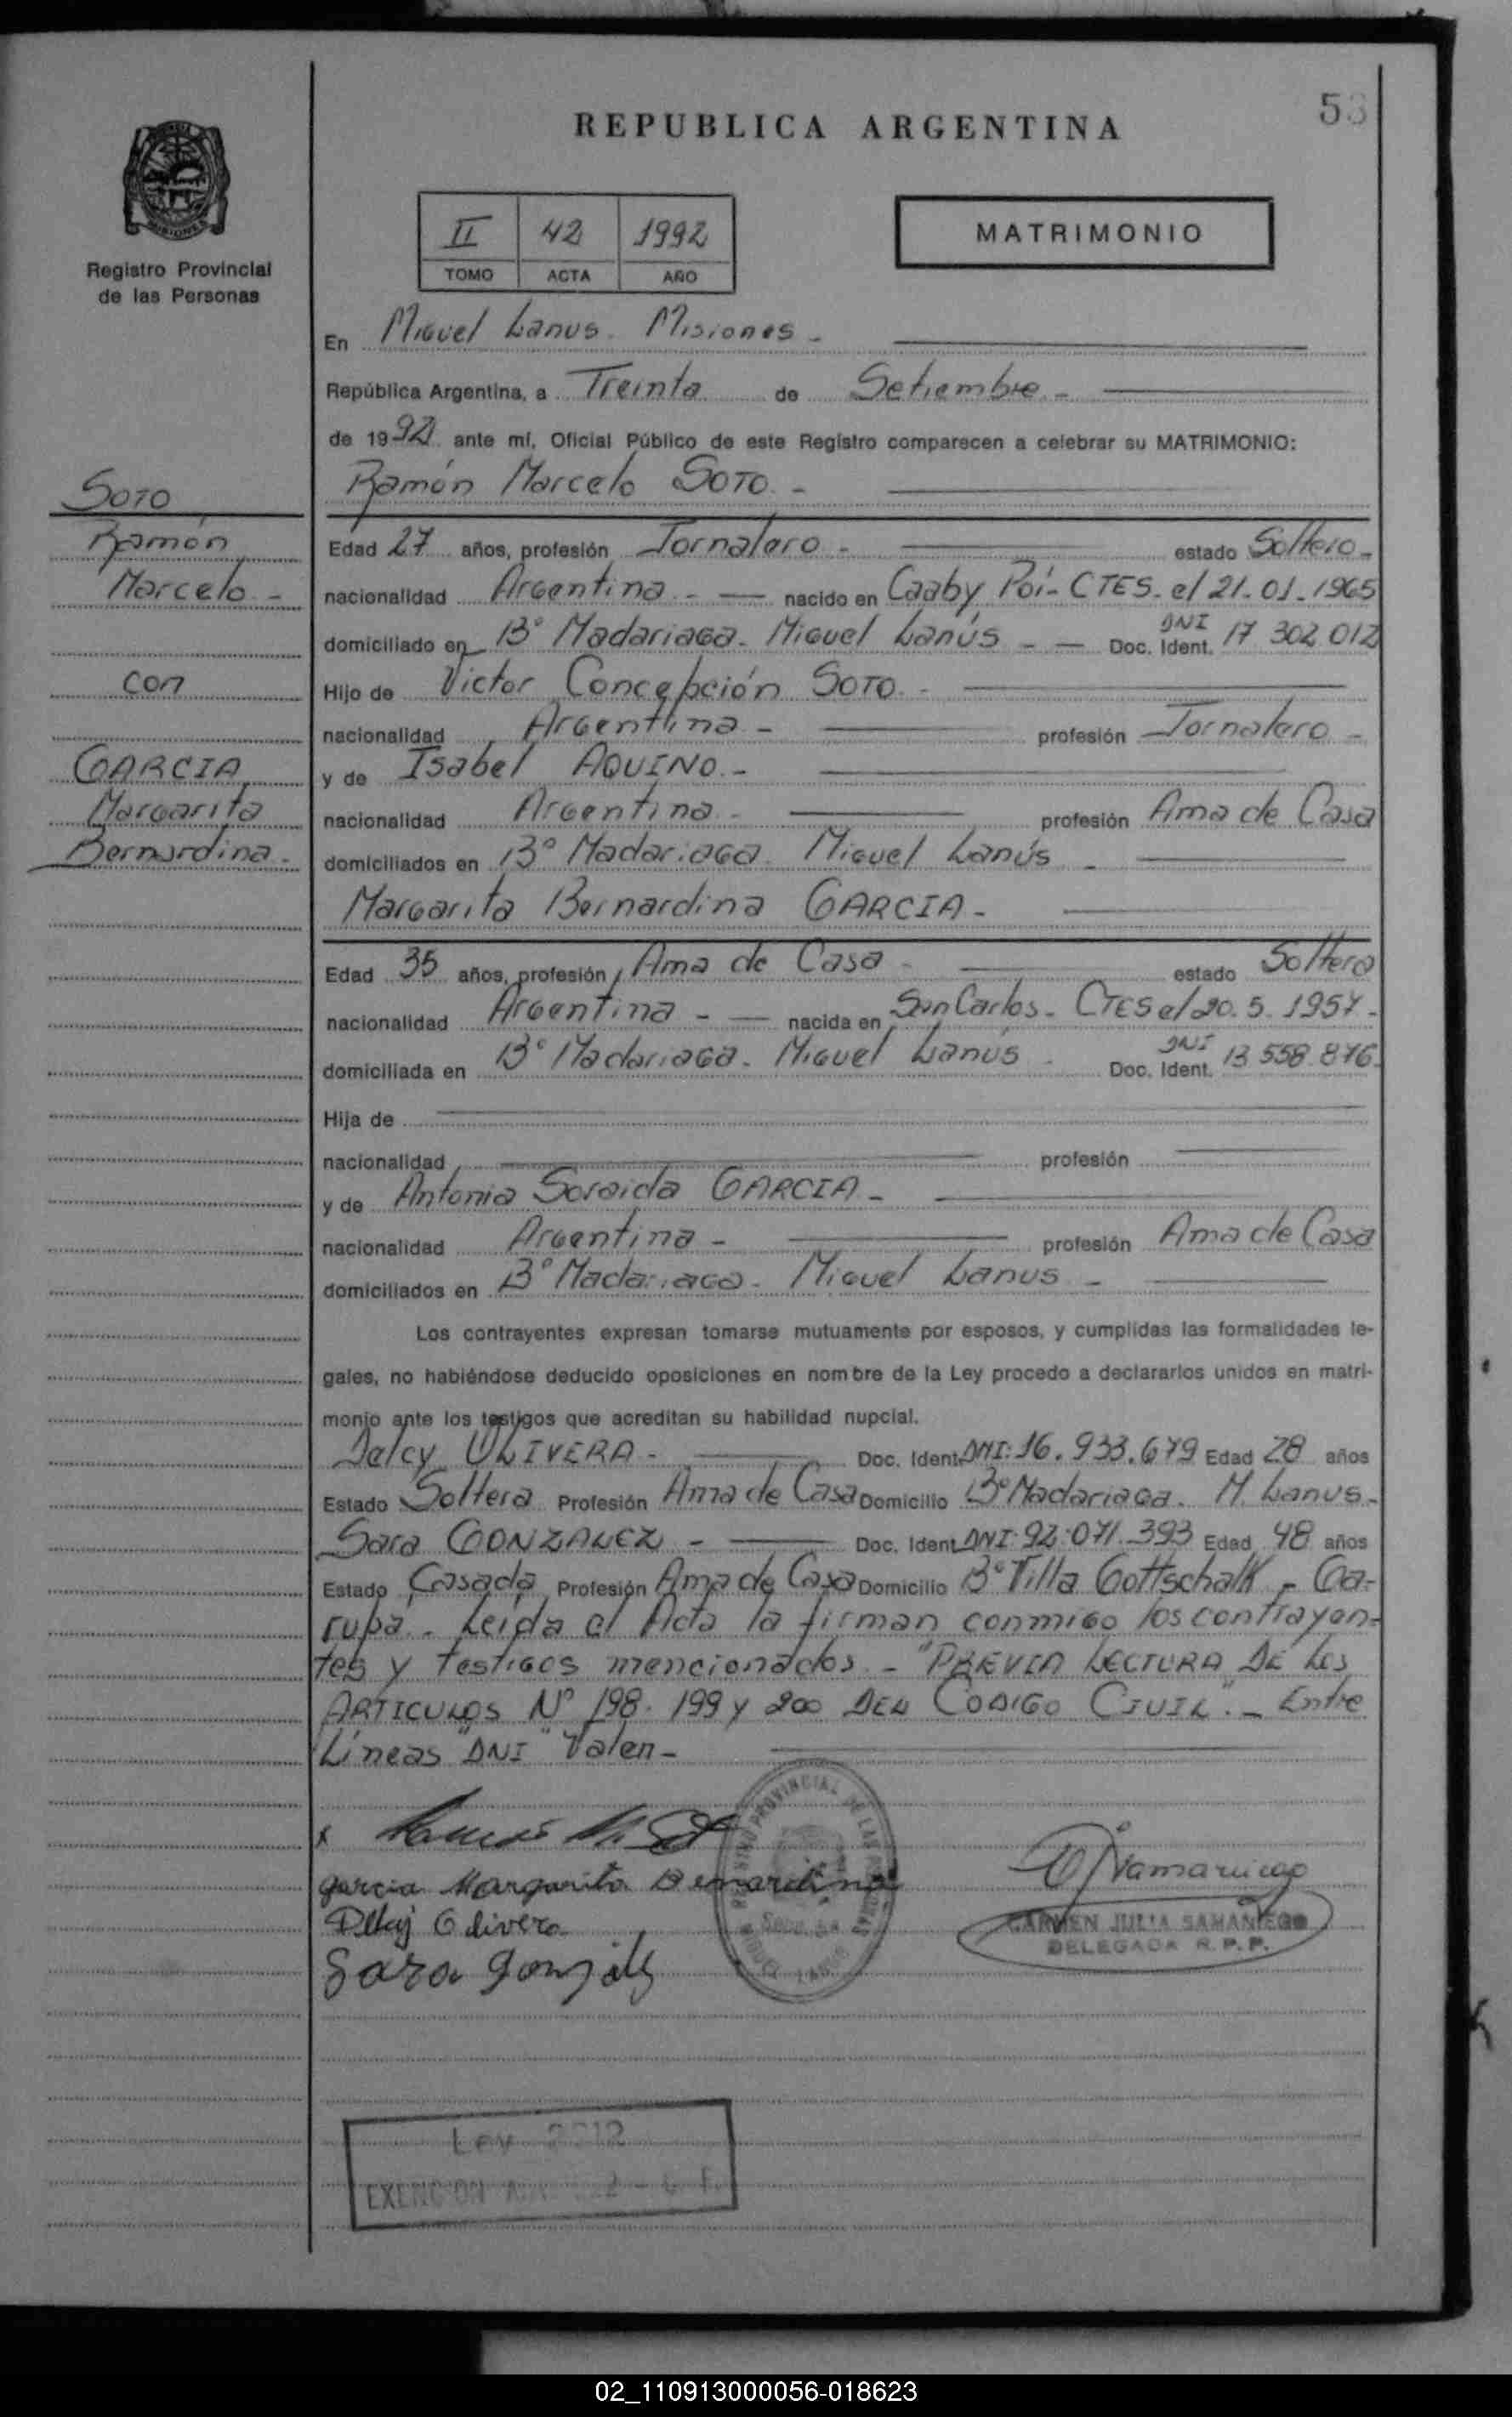 53
REPUBLICA ARGENTINA
II 42 1992
TOMO ACTA AÑO
MATRIMONIO
MISIONES
Registro Provincial
de las Personas
En Miguel Lanus. Misiones -
República Argentina, a Treinta de Setiembre. -
de 1992 ante mí, Oficial Público de este Registro comparecen a celebrar su MATRIMONIO:
Ramón Marcelo SOTO. -
SOTO
Ramón
Marcelo -
con
GARCIA
Margarita
Bernardina. -
Edad 27 años, profesión Jornalero - estado Soltero -
nacionalidad Argentina - nacido en Caaby Poí - CTES. el 21. 01. 1965
domiciliado en B° Madariaga. Miguel Lanús - Doc. Ident. DNI 17 302 012
Hijo de Victor Concepción SOTO. -
nacionalidad Argentina - profesión Jornalero -
y de Isabel AQUINO. -
nacionalidad Argentina. - profesión Ama de Casa
domiciliados en B° Madariaga. Miguel Lanús -
Margarita Bernardina GARCIA -
Edad 35 años, profesión Ama de Casa - estado Soltera
nacionalidad Argentina - nacida en San Carlos. CTES el 20. 5. 1957 -
domiciliada en B° Madariaga. Miguel Lanús - Doc. Ident. DNI 13 558 876.
Hija de
nacionalidad profesión
y de Antonia Soraida GARCIA -
nacionalidad Argentina - profesión Ama de Casa
domiciliados en B° Madariaga. Miguel Lanus -
Los contrayentes expresan tomarse mutuamente por esposos, y cumplidas las formalidades le-
gales, no habiéndose deducido oposiciones en nombre de la Ley procedo a declararlos unidos en matri-
monio ante los testigos que acreditan su habilidad nupcial.
Delcy OLIVERA - Doc. Ident. DNI: 16. 933. 679 Edad 28 años
Estado Soltera Profesión Ama de Casa Domicilio B° Madariaga. M. Lanus -
Sara GONZALEZ - Doc. Ident. DNI: 92. 071. 393 Edad 48 años
Estado Casada Profesión Ama de Casa Domicilio B° Villa Gottschalk - Ga-
rupá. - Leída el Acta la firman conmigo los contrayen-
tes y testigos mencionados. - "PREVIA LECTURA DE LOS
ARTICULOS N° 198. 199 y 200 DEL CODIGO CIVIL". - Entre
Líneas "DNI" Valen -
x
garcia Margarita Bernardina
Olivera
Sara Gonzalez
CARMEN JULIA SAMANIEGO
DELEGADA R. P. P.
Ley
EXENCION
02_110913000056-018623